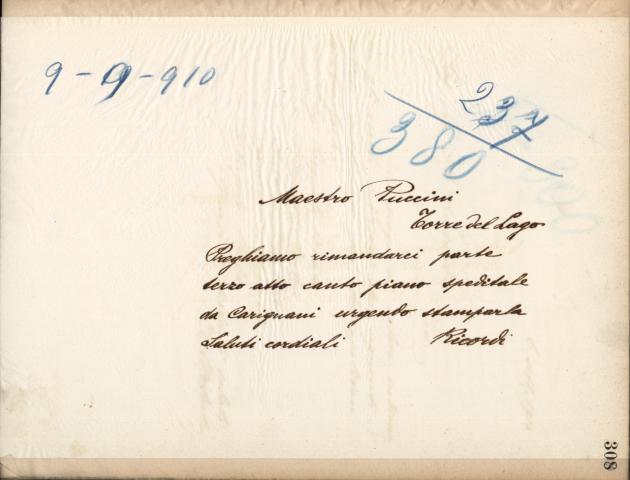 9-9-910
237
380
Maestro Puccini
Torre del Lago
Preghiamo rimandarci parte
terzo atto canto piano speditale
da Carignani urgendo stamparla
Saluti cordiali Ricordi
308